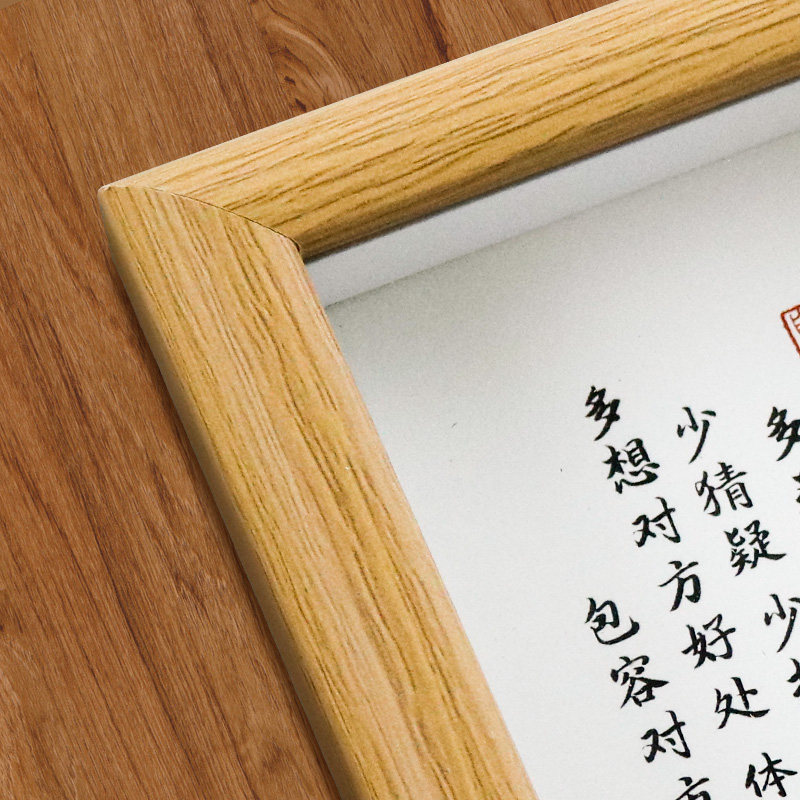 多
少猜疑 少
多想对方好处 体
包容对方